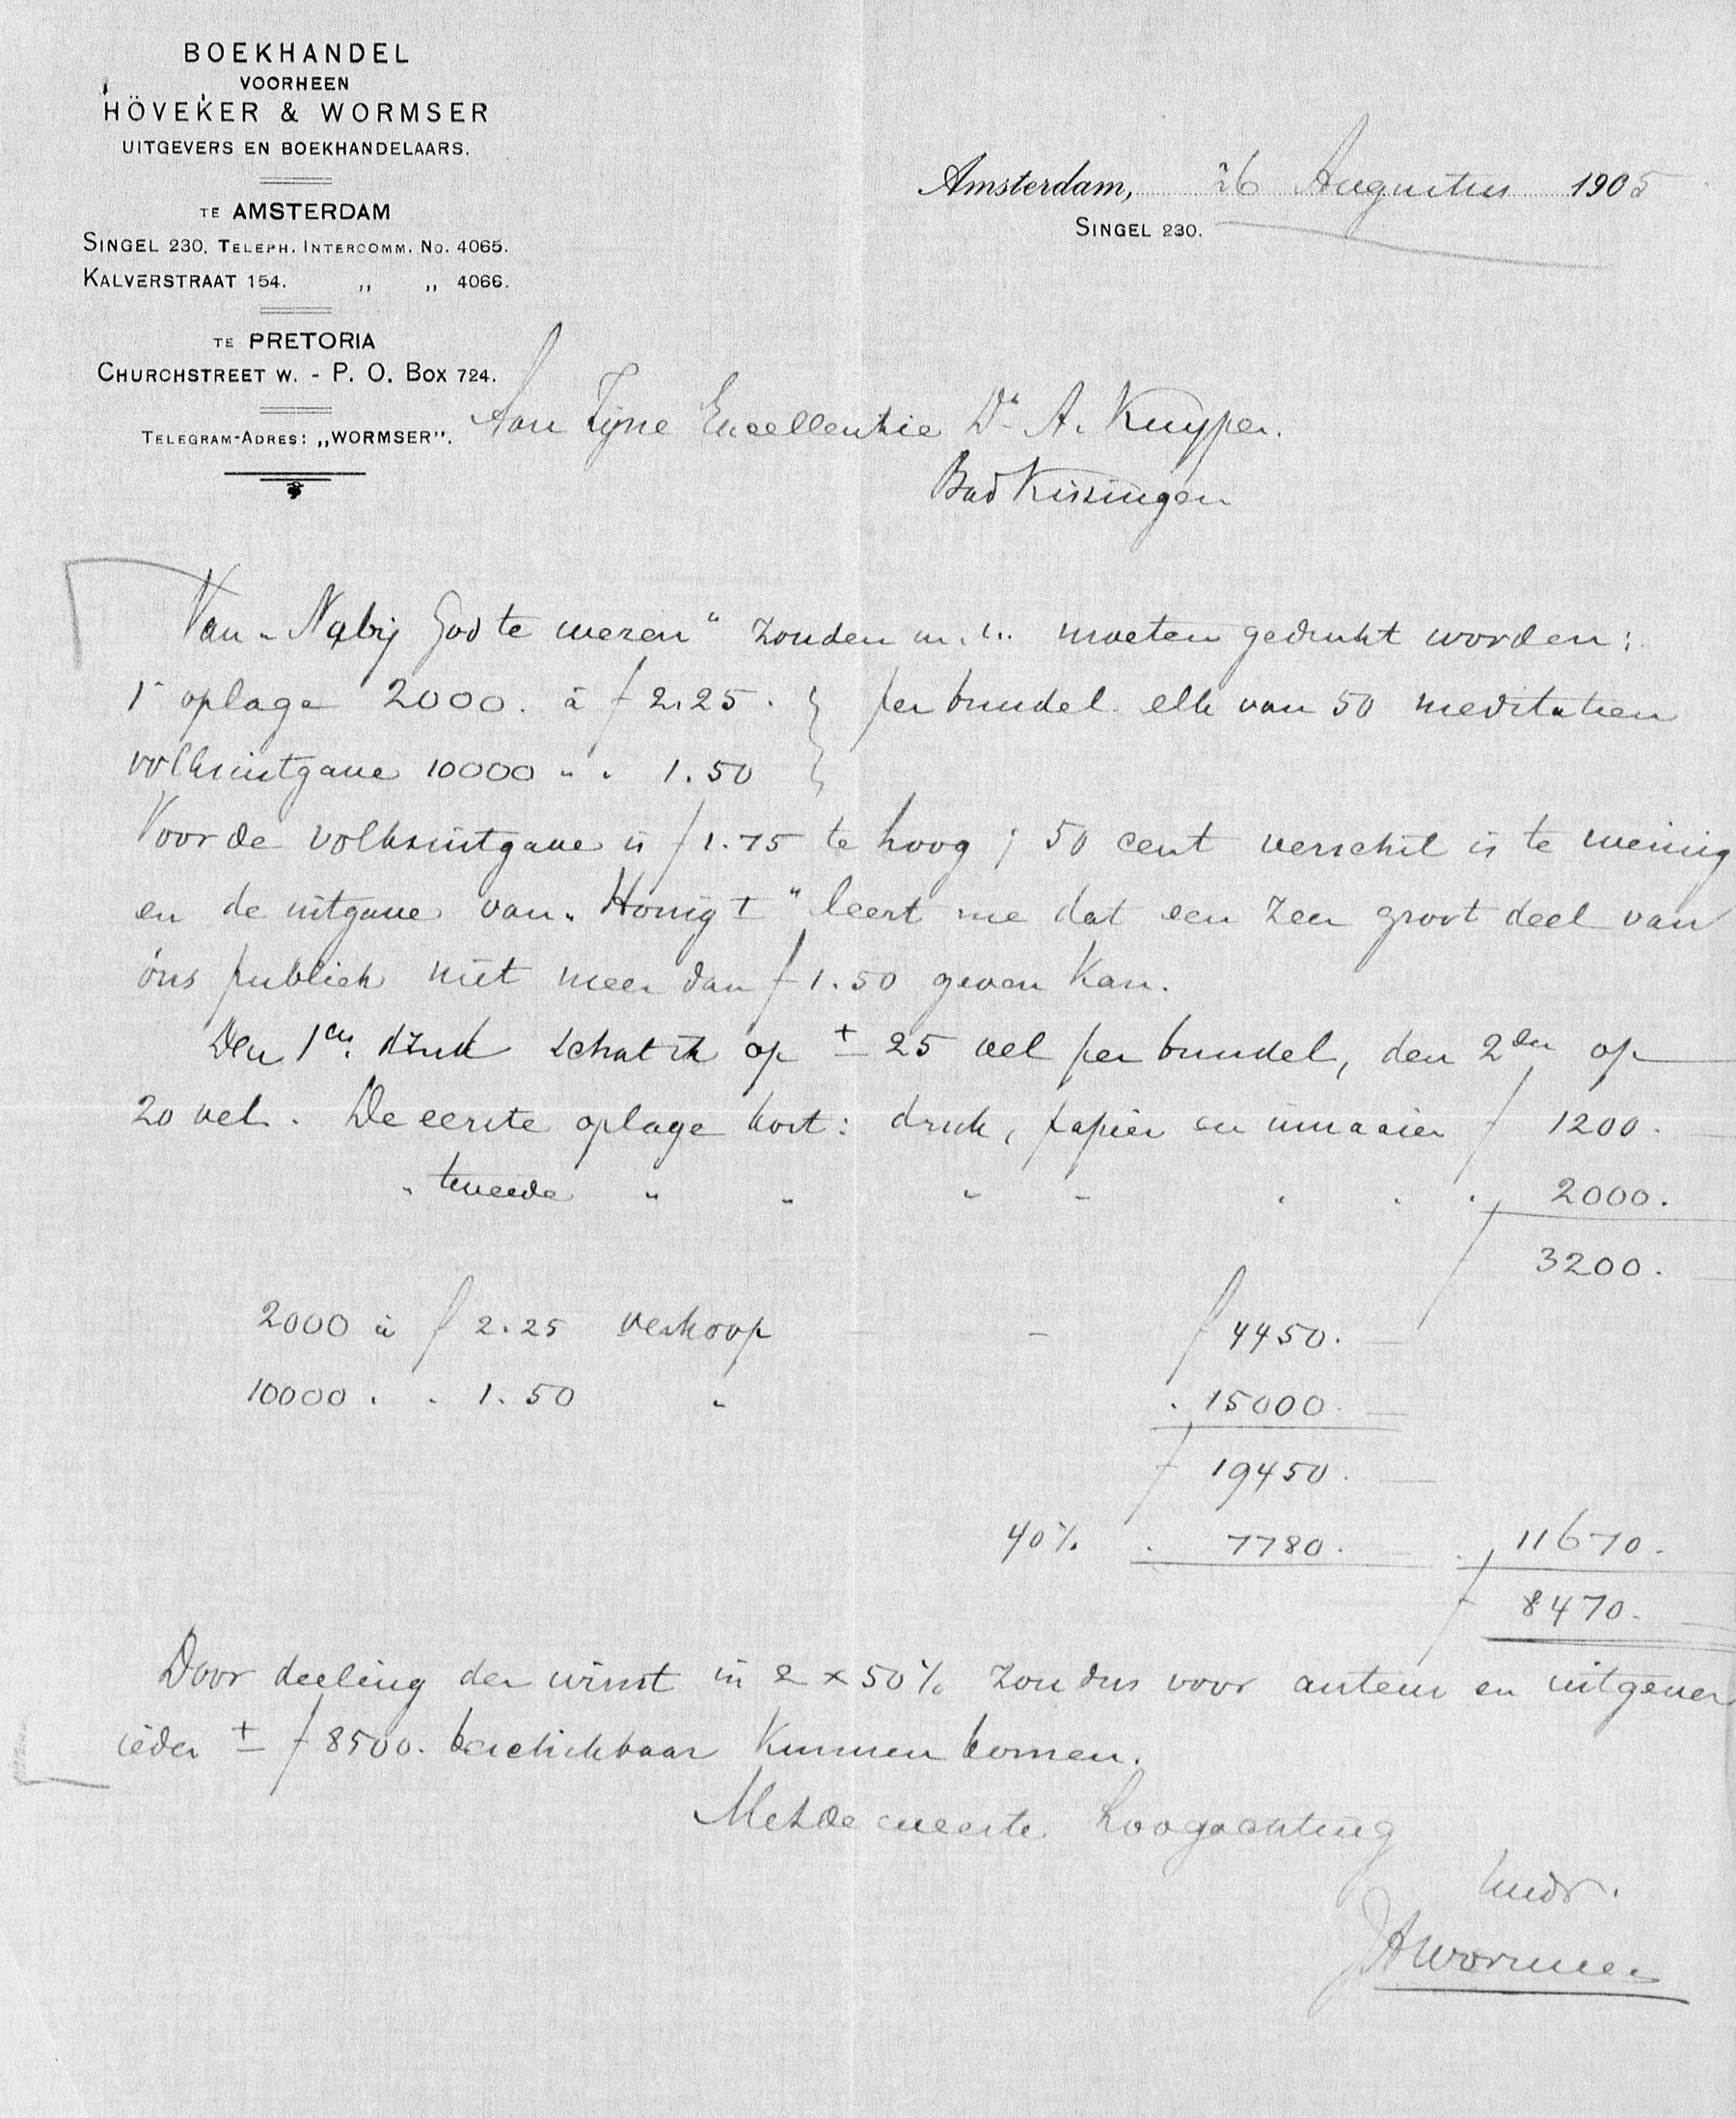 BOEKHANDEL
VOORHEEN
HÖVEKER & WORMSER
UITGEVERS EN BOEKHANDELAARS.
TE AMSTERDAM
SINGEL 230, TELEPH. INTERCOMM. No. 4065.
KALVERSTRAAT 154. „ „ 4066.
TE PRETORIA
CHURCHSTREET W. - P. O. BOX 724.
TELEGRAM-ADRES: „WORMSER".
Amsterdam, 26 Augustus 1905
SINGEL 230.
Aan Zijne Excellentie Dr A. Kuyper.
Bad Kissingen
Van „Nabij God te wezen" zouden m. i. moeten gedrukt worden:
1e oplage 2000. à f 2.25. } per bundel elk van 50 meditatien
volksuitgave 10000 " " 1.50 }
Voor de volksuitgave is f 1.75 te hoog; 50 cent verschil is te weinig
en de uitgave van „Honig I" leert me dat een zeer groot deel van
óns publiek niet meer dan f 1.50 geven kan.
Den 1en druk schat ik op ± 25 vel per bundel, den 2den op
20 vel. De eerste oplage kost: druk, papier en innaaien f 1200.
" tweede " " " " " " " 2000.
f 3200.
2000 à f 2.25 verkoop - f 4450.
10000 " " 1.50 " " 15000.
f 19450.
40% " 7780. " 11670.
f 8470.
Door deeling der winst in 2 x 50% zou dus voor auteur en uitgever
ieder ± f 8500. beschikbaar kunnen komen.
Met de meeste hoogachting
Uwdr.
JAWormser